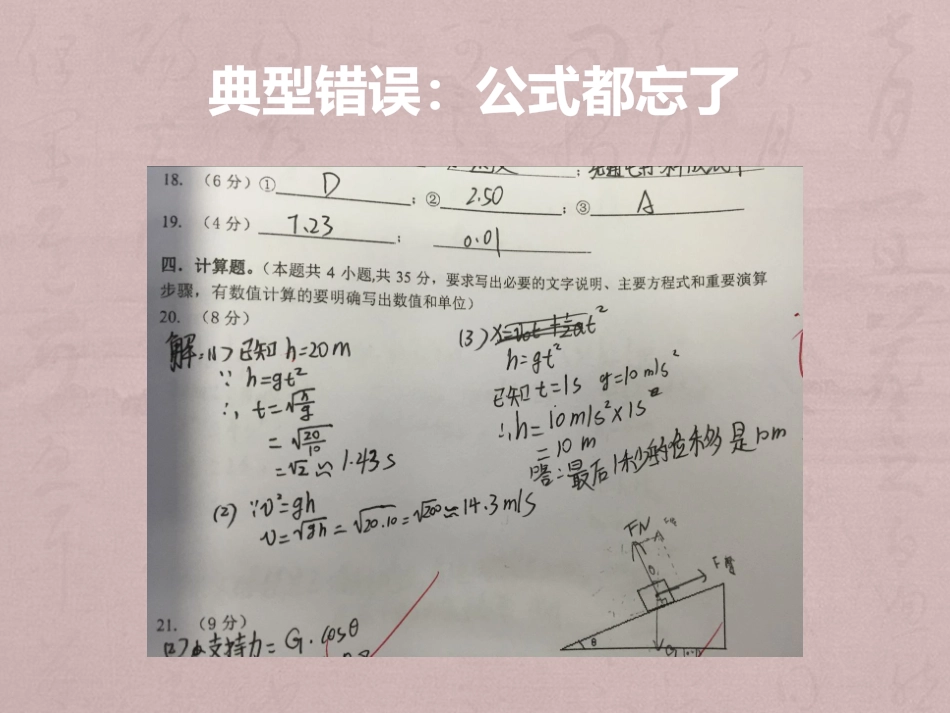 典型错误：公式都忘了
18. （6分）① D ；② 2.50 ；③ A
19. （4分） 7.23 ； 0.01
四．计算题。（本题共4小题,共35分，要求写出必要的文字说明、主要方程式和重要演算
步骤，有数值计算的要明确写出数值和单位）
20. （8分）
解：(1) 已知 h=20m
∵ h=gt²
∴ t=√(h/g)
=√(20/10)
=√2≈1.43s
(2) ∵v²=gh
v=√gh=√20.10=√200≈14.3m/s
(3) x=v₀t+½at²
h=gt²
已知t=1s g=10m/s²
∴h=10m/s²×1s
=10m
答：最后1秒的位移是10m
FN
F
θ
G
21. （9分）
支持力=G·cosθ